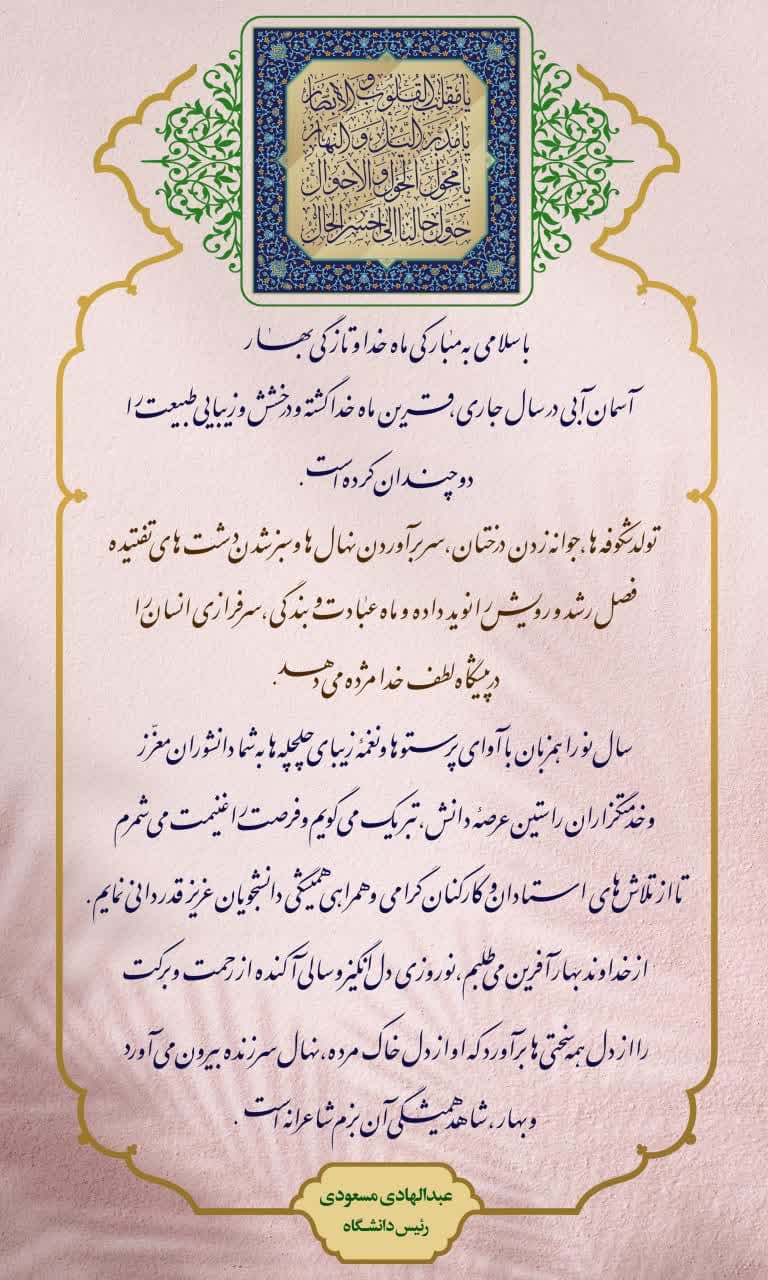 یا مقلب القلوب و الابصار
یا مدبر اللیل و النهار
یا محول الحول و الاحوال
حول حالنا الی احسن الحال
با سلامی به مبارکی ماه خدا و تازگی بهار
آسمان آبی در سال جاری، قرین ماه خدا گشته و درخشش و زیبایی طبیعت را
دو چندان کرده است.
تولد شکوفه ها، جوانه زدن درختان، سر برآوردن نهال ها و سبز شدن دشت های تفتیده
فصل رشد و رویش را نوید داده و ماه عبادت و بندگی، سرفرازی انسان را
در پیشگاه لطف خدا مژده می دهد.
سال نو را همزبان با آوای پرستوها و نغمهٔ زیبای چلچله ها به شما دانشوران معزّز
و خدمتگزاران راستین عرصهٔ دانش، تبریک می گویم و فرصت را غنیمت می شمرم
تا از تلاش های استادان و کارکنان گرامی و همراهی همیشگی دانشجویان عزیز قدردانی نمایم.
از خداوند بهارآفرین می طلبم، نوروزی دل انگیز و سالی آکنده از رحمت و برکت
را از دل همه سختی ها برآورد که او از دل خاک مرده، نهال سرزنده بیرون می آورد
و بهار، شاهد همیشگی آن بزم شاعرانه است.
عبدالهادی مسعودی
رئیس دانشگاه